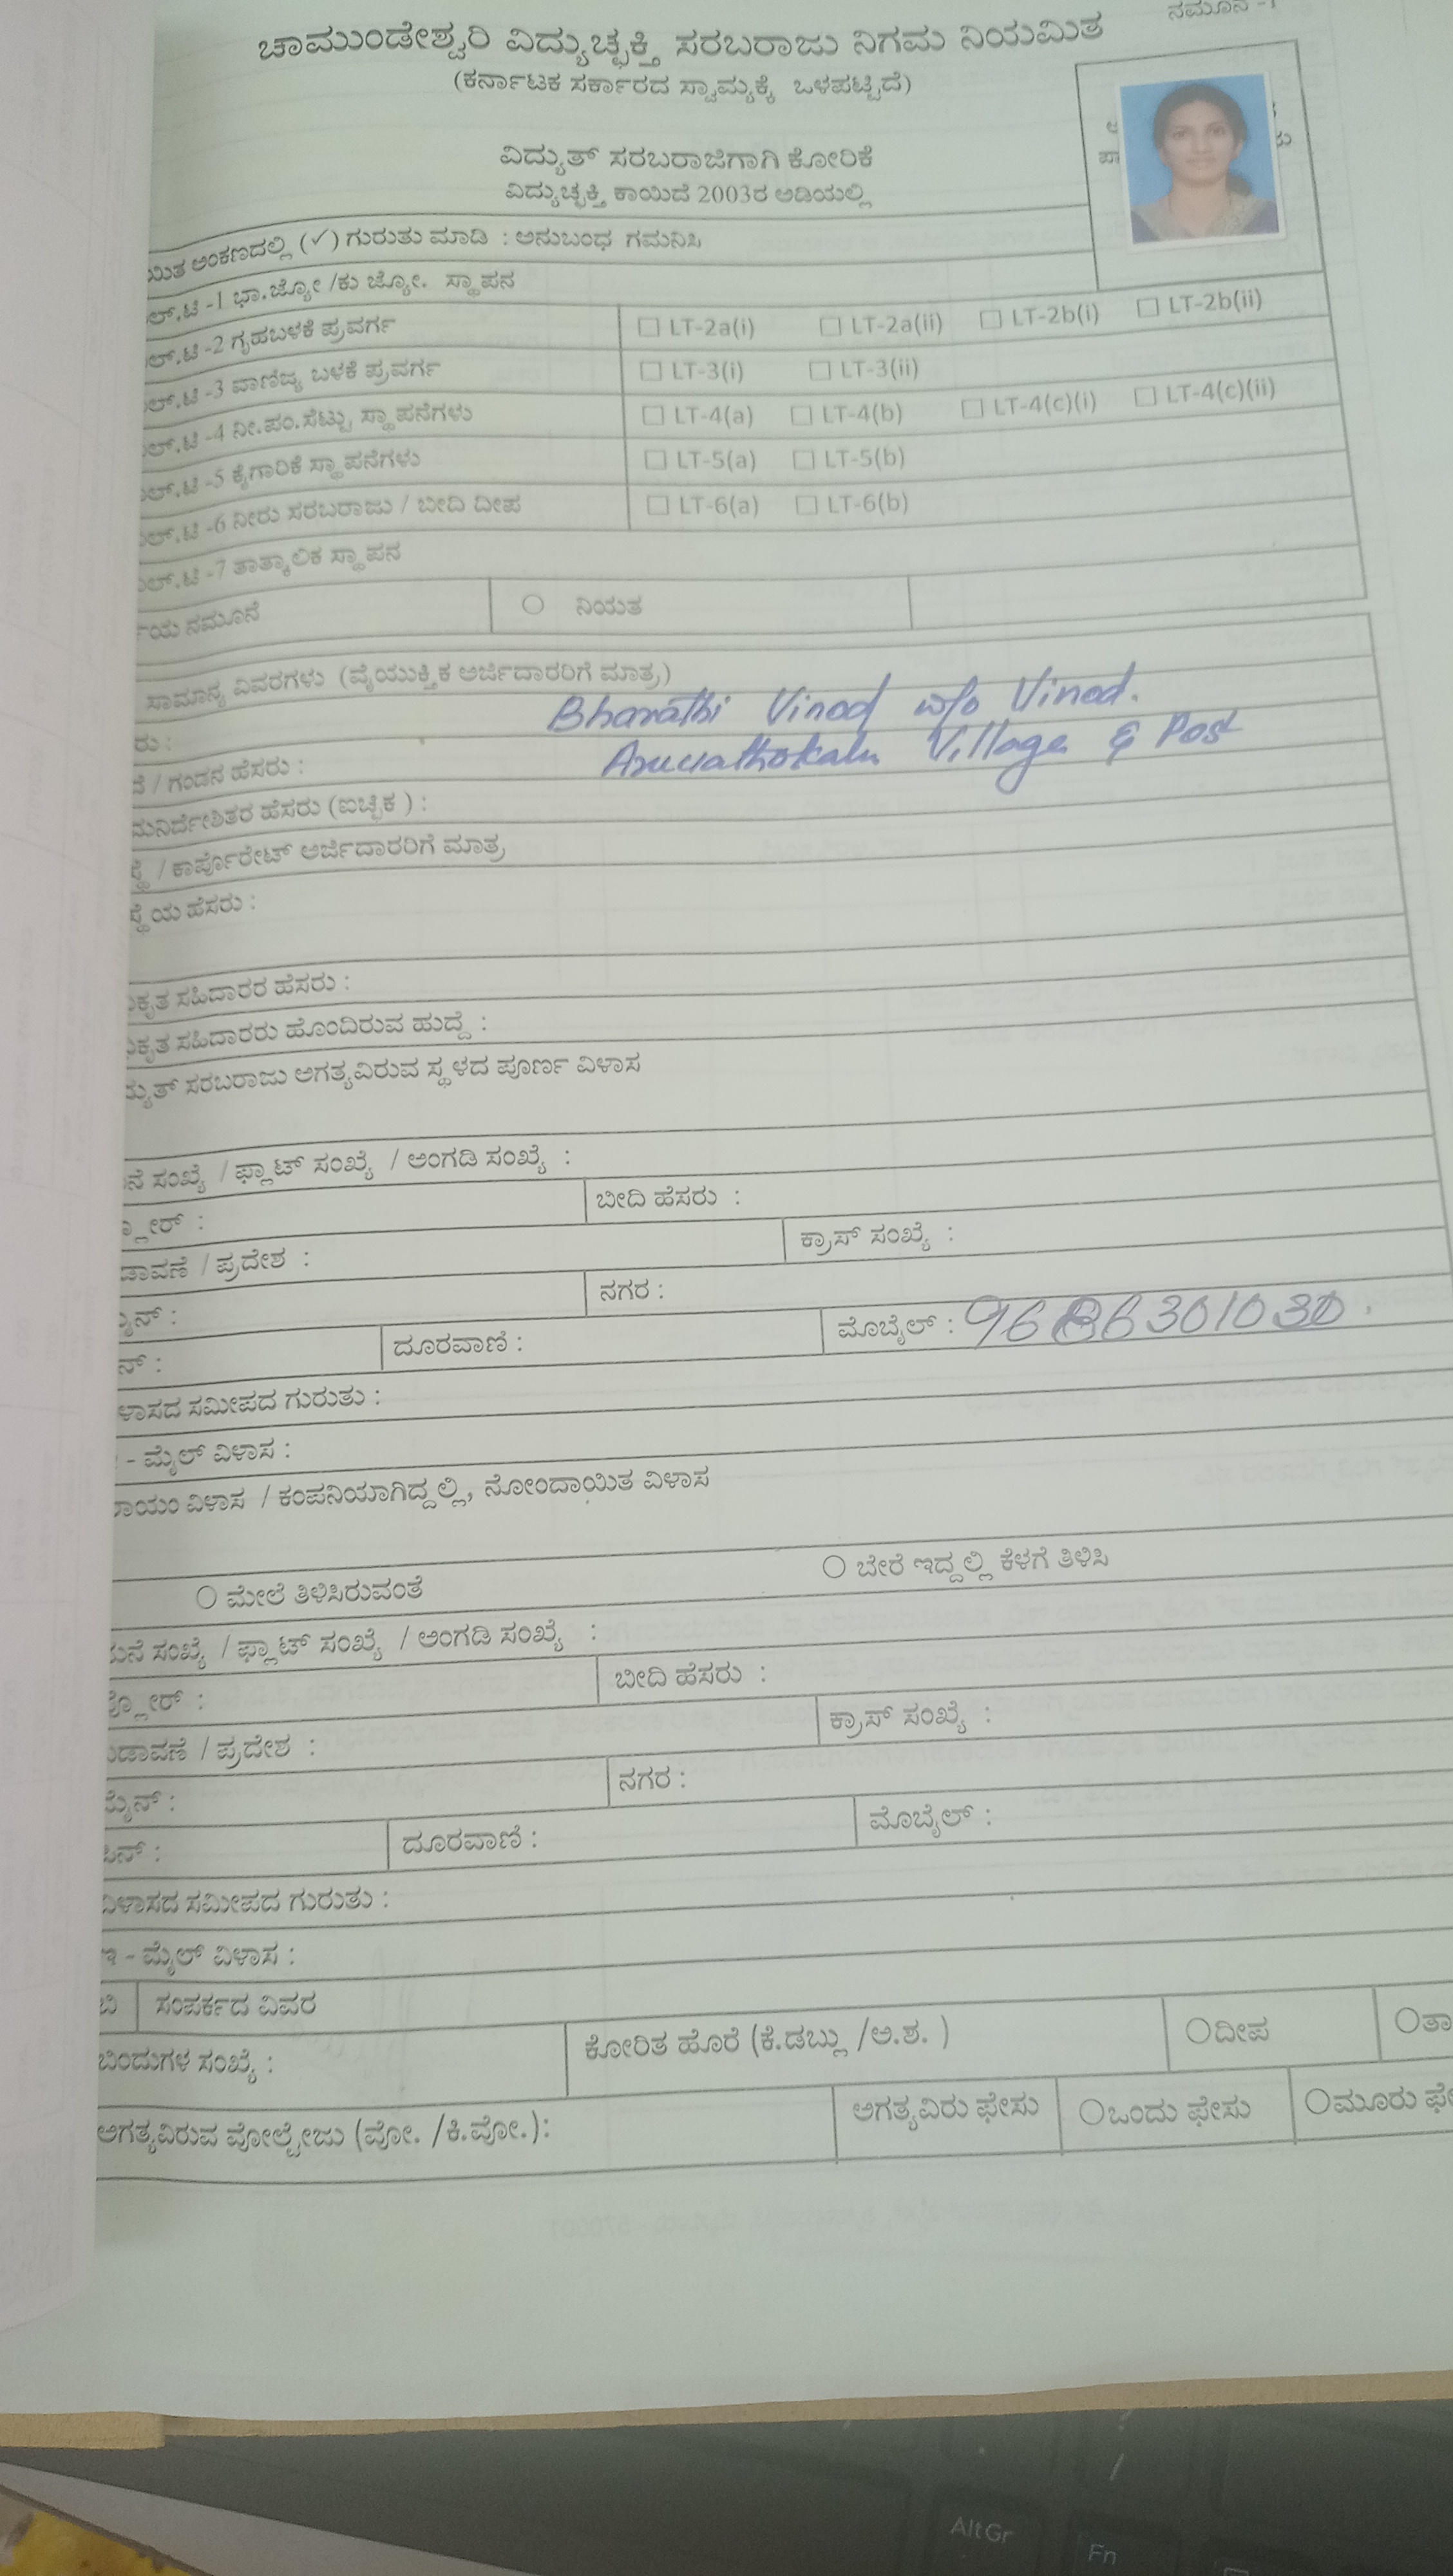 ನಮೂನೆ -1
ಚಾಮುಂಡೇಶ್ವರಿ ವಿದ್ಯುಚ್ಛಕ್ತಿ ಸರಬರಾಜು ನಿಗಮ ನಿಯಮಿತ
(ಕರ್ನಾಟಕ ಸರ್ಕಾರದ ಸ್ವಾಮ್ಯಕ್ಕೆ ಒಳಪಟ್ಟಿದೆ)
ವಿದ್ಯುತ್ ಸರಬರಾಜಿಗಾಗಿ ಕೋರಿಕೆ
ವಿದ್ಯುಚ್ಛಕ್ತಿ ಕಾಯಿದೆ 2003ರ ಅಡಿಯಲ್ಲಿ
ಅಂಕಣದಲ್ಲಿ (✓) ಗುರುತು ಮಾಡಿ : ಅನುಬಂಧ ಗಮನಿಸಿ
ಲ್.ಟಿ -1 ಭಾ.ಜ್ಯೋ /ಕು ಜ್ಯೋ. ಸ್ಥಾಪನ
ಲ್.ಟಿ -2 ಗೃಹಬಳಕೆ ಪ್ರವರ್ಗ ☐ LT-2a(i) ☐ LT-2a(ii) ☐ LT-2b(i) ☐ LT-2b(ii)
ಲ್.ಟಿ -3 ವಾಣಿಜ್ಯ ಬಳಕೆ ಪ್ರವರ್ಗ ☐ LT-3(i) ☐ LT-3(ii)
ಲ್.ಟಿ -4 ನೀ.ಪಂ.ಸೆಟ್ಟು ಸ್ಥಾಪನೆಗಳು ☐ LT-4(a) ☐ LT-4(b) ☐ LT-4(c)(i) ☐ LT-4(c)(ii)
ಲ್.ಟಿ -5 ಕೈಗಾರಿಕೆ ಸ್ಥಾಪನೆಗಳು ☐ LT-5(a) ☐ LT-5(b)
ಲ್.ಟಿ -6 ನೀರು ಸರಬರಾಜು / ಬೀದಿ ದೀಪ ☐ LT-6(a) ☐ LT-6(b)
ಲ್.ಟಿ -7 ತಾತ್ಕಾಲಿಕ ಸ್ಥಾಪನ
ಯ ನಮೂನೆ ○ ನಿಯತ
ಸಾಮಾನ್ಯ ವಿವರಗಳು (ವೈಯುಕ್ತಿಕ ಅರ್ಜಿದಾರರಿಗೆ ಮಾತ್ರ)
ರು : Bharathi Vinod w/o Vinod.
/ ಗಂಡನ ಹೆಸರು : Aruvathokalu Village & Post
ಮನಿರ್ದೇಶಿತರ ಹೆಸರು (ಐಚ್ಛಿಕ ) :
/ ಕಾರ್ಪೊರೇಟ್ ಅರ್ಜಿದಾರರಿಗೆ ಮಾತ್ರ
ಸ್ಥೆಯ ಹೆಸರು :
ಕೃತ ಸಹಿದಾರರ ಹೆಸರು :
ಕೃತ ಸಹಿದಾರರು ಹೊಂದಿರುವ ಹುದ್ದೆ :
ದ್ಯುತ್ ಸರಬರಾಜು ಅಗತ್ಯವಿರುವ ಸ್ಥಳದ ಪೂರ್ಣ ವಿಳಾಸ
ನೆ ಸಂಖ್ಯೆ / ಫ್ಲಾಟ್ ಸಂಖ್ಯೆ / ಅಂಗಡಿ ಸಂಖ್ಯೆ :
್ಲೋರ್ : ಬೀದಿ ಹೆಸರು :
ಡಾವಣೆ / ಪ್ರದೇಶ : ಕ್ರಾಸ್ ಸಂಖ್ಯೆ :
ನ್ : ನಗರ :
ನ್ : ದೂರವಾಣಿ : ಮೊಬೈಲ್ : 9686301030
ಳಾಸದ ಸಮೀಪದ ಗುರುತು :
- ಮೈಲ್ ವಿಳಾಸ :
ಾಯಂ ವಿಳಾಸ / ಕಂಪನಿಯಾಗಿದ್ದಲ್ಲಿ, ನೋಂದಾಯಿತ ವಿಳಾಸ
○ ಮೇಲೆ ತಿಳಿಸಿರುವಂತೆ ○ ಬೇರೆ ಇದ್ದಲ್ಲಿ ಕೆಳಗೆ ತಿಳಿಸಿ
ಮನೆ ಸಂಖ್ಯೆ / ಫ್ಲಾಟ್ ಸಂಖ್ಯೆ / ಅಂಗಡಿ ಸಂಖ್ಯೆ :
ಫ್ಲೋರ್ : ಬೀದಿ ಹೆಸರು :
ಬಡಾವಣೆ / ಪ್ರದೇಶ : ಕ್ರಾಸ್ ಸಂಖ್ಯೆ :
ಮೈನ್ : ನಗರ :
ಪಿನ್ : ದೂರವಾಣಿ : ಮೊಬೈಲ್ :
ವಿಳಾಸದ ಸಮೀಪದ ಗುರುತು :
ಇ - ಮೈಲ್ ವಿಳಾಸ :
ಬಿ ಸಂಪರ್ಕದ ವಿವರ
ಬಿಂದುಗಳ ಸಂಖ್ಯೆ : ಕೋರಿತ ಹೊರೆ (ಕೆ.ಡಬ್ಲು /ಅ.ಶ. ) ○ದೀಪ ○ತಾ
ಅಗತ್ಯವಿರುವ ವೋಲ್ಟೇಜು (ವೋ. /ಕಿ.ವೋ.): ಅಗತ್ಯವಿರು ಫೇಸು ○ಒಂದು ಫೇಸು ○ಮೂರು ಫೇ
AltGr
Fn
?
/